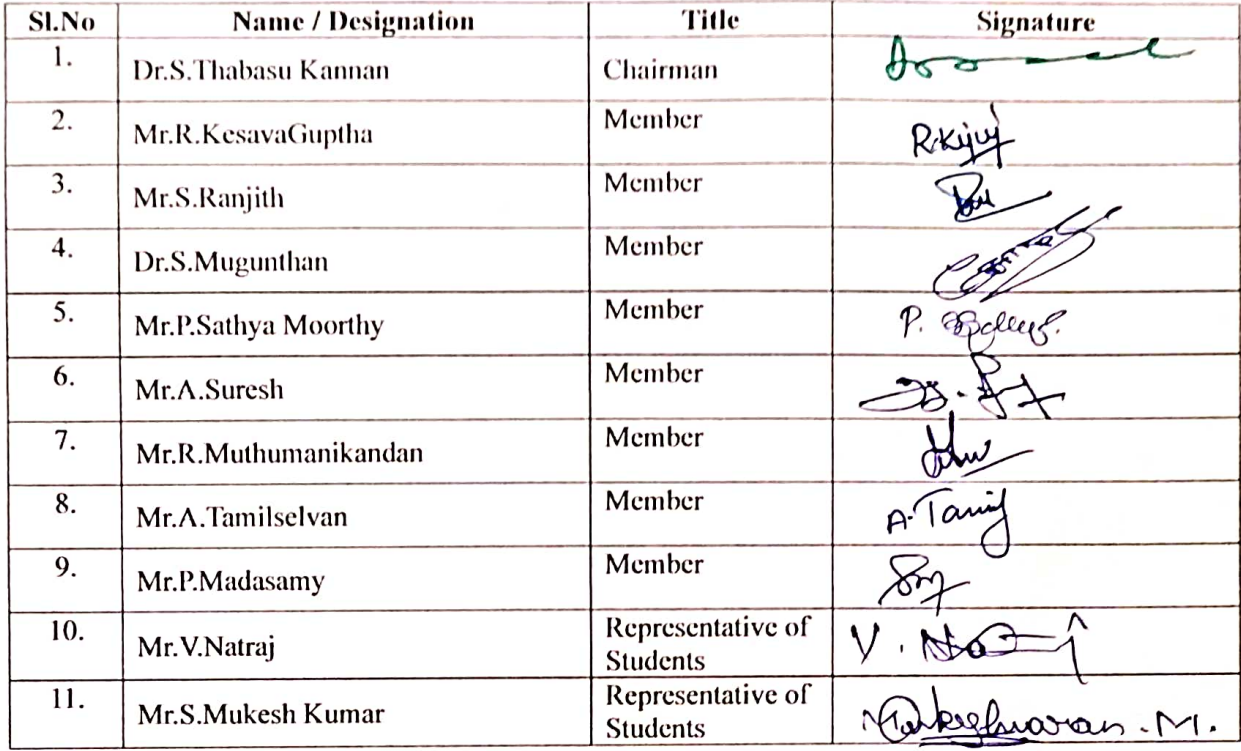 Sl.No Name / Designation Title Signature
1. Dr.S.Thabasu Kannan Chairman
2. Mr.R.KesavaGuptha Member
3. Mr.S.Ranjith Member
4. Dr.S.Mugunthan Member
5. Mr.P.Sathya Moorthy Member P.
6. Mr.A.Suresh Member
7. Mr.R.Muthumanikandan Member
8. Mr.A.Tamilselvan Member A.Tamil
9. Mr.P.Madasamy Member
10. Mr.V.Natraj Representative of V.
Students
11. Mr.S.Mukesh Kumar Representative of
Students